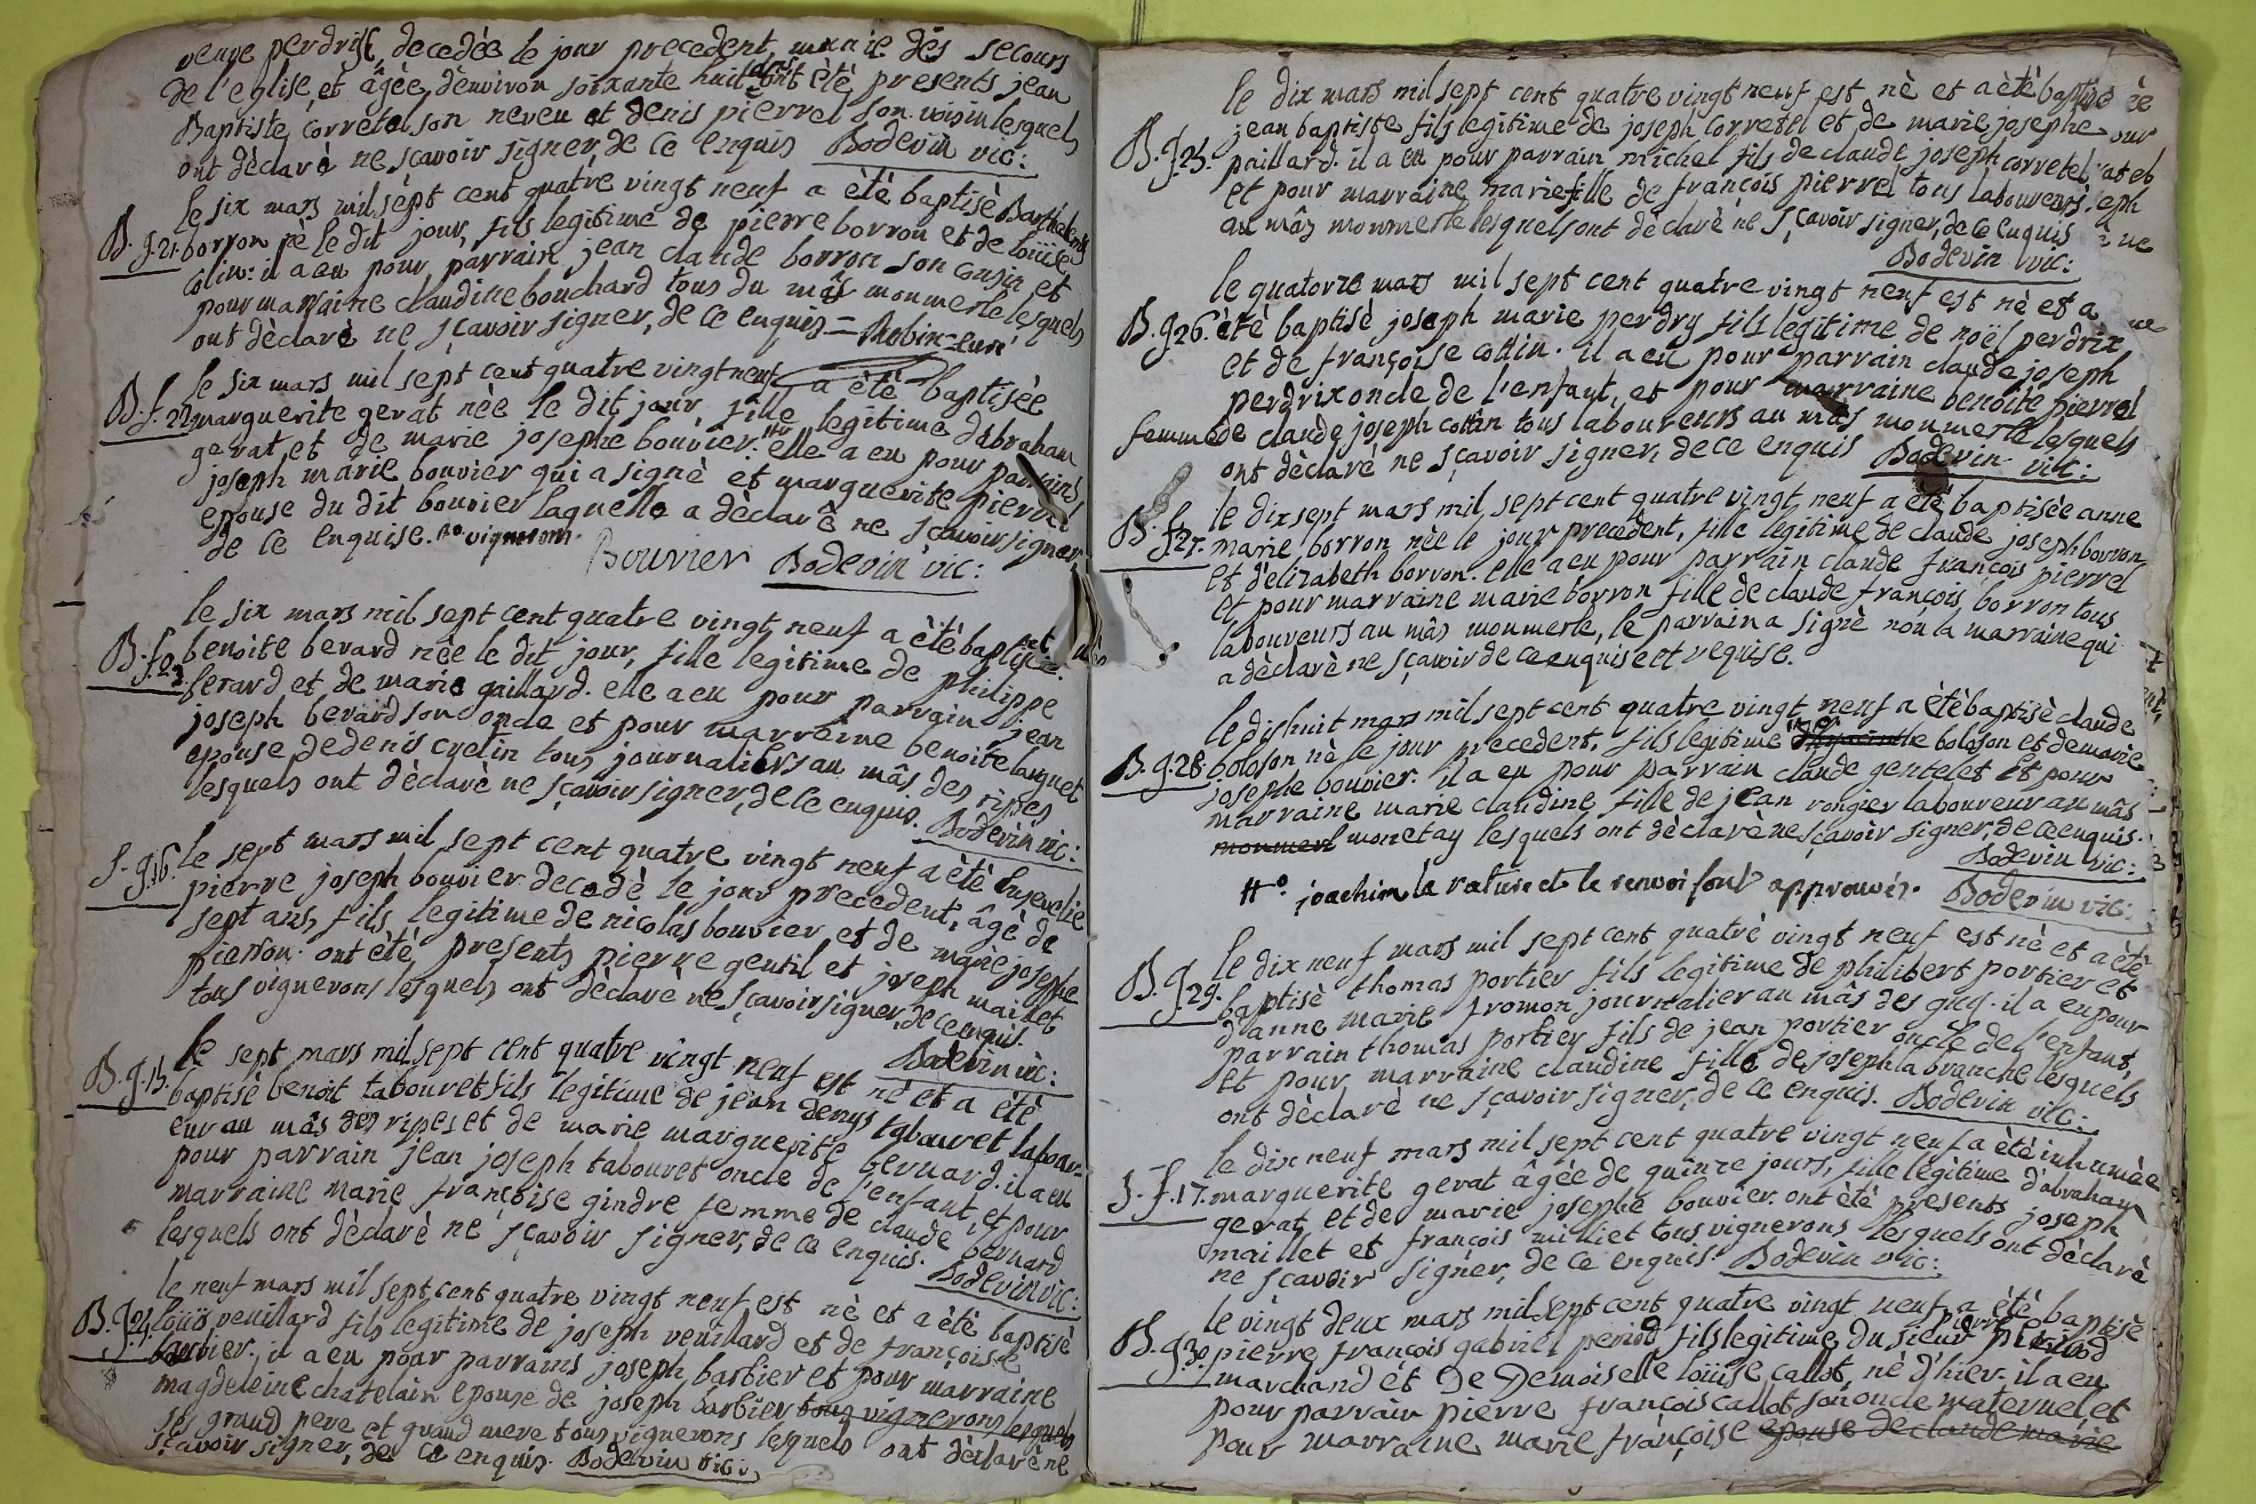 veuve perdrix, decedèe le jour precedent, munie des secours
de l'eglise, et âgèe d'environ soixante huit ans ont ètè presents jean
Baptiste corretel son neveu et denis pierrel son voisin lesquels
ont dèclarè ne sçavoir signer, de ce enquis Bodevin vic:
le six mars mil sept cent quatre vingt neuf a ètè baptisè Barthelemy
B. g. 21. borron nè le dit jour, fils legitime de pierre borron et de loüise
Colin: il a eu pour parrain jean claude borron son cousin et
pour marraine claudine bouchard tous du mâs monmerle lesquels
ont dèclarè ne sçavoir signer, de ce enquis = Robin curé
le six mars mil sept cent quatre vingt neuf a ètè baptisèe
B. f. 22 marguerite gerat nèe le dit jour, fille legitime d'abraham
gerat et de marie josephe bouvier. elle a eu pour parrains
joseph marie bouvier qui a signè et marguerite pierrel
epouse du dit bouvier laquelle a dèclarè ne sçavoir signer,
de ce enquise. vigneron.
Bouvier Bodevin vic:
le six mars mil sept cent quatre vingt neuf a ètè baptisèe
B. f. 23. benoite berard nèe le dit jour, fille legitime de philippe
berard et de marie gaillard. elle a eu pour parrain jean
joseph berard son oncle et pour marreine benoite languet
epouse de denis cyelin tous journaliers au mâs des rippes
lesquels ont dèclarè ne sçavoir signer, de ce enquis. Bodevin vic:
S. g. 16. le sept mars mil sept cent quatre vingt neuf a ètè ensevelie
pierre joseph bouvier decedè le jour precedent, âgè de
sept ans, fils legitime de nicolas bouvier et de marie josephe
pierron. ont ètè presents pierre gentil et joseph maillet
tous vignerons lesquels ont dèclarè ne sçavoir signer, de ce enquis.
Bodevin vic:
le sept mars mil sept cent quatre vingt neuf est nè et a ètè
B. g. 13. baptisè benoit tabouret fils legitime de jean denys tabouret labour-
eur au mâs des rippes et de marie marguerite bernard. il a eu
pour parrain jean joseph tabouret oncle de l'enfant, et pour
marraine marie françoise gindre femme de claude bernard
lesquels ont dèclarè ne sçavoir signer, de ce enquis. Bodevin vic:
le neuf mars mil sept cent quatre vingt neuf est nè et a ètè baptisè
B. g. 24. loüis veuillard fils legitime de joseph veuillard et de françoise
barbier. il a eu pour parrains joseph barbier et pour marraine
magdeleine chatelain epouse de joseph barbier tous vignerons lesquels
ses grand pere et grand mere tous vignerons lesquels ont dèclarè ne
sçavoir signer, de ce enquis. Bodevin vic:
le dix mars mil sept cent quatre vingt neuf est nè et a ètè baptisè
B. g. 25. jean baptiste fils legitime de joseph corretel et de marie josephe
paillard. il a eu pour parrain michel fils de claude joseph corretel
et pour marraine marie fille de françois pierrel tous laboureurs
au mâs monmerle lesquels ont dèclarè ne sçavoir signer, de ce enquis
Bodevin vic:
le quatorze mars mil sept cent quatre vingt neuf est nè et a
B. g. 26. ètè baptisè joseph marie perdry fils legitime de noël perdrix
et de françoise cottin. il a eu pour parrain claude joseph
perdrix oncle de l'enfant, et pour marraine benoite pierrel
femme de claude joseph cottin tous laboureurs au mâs monmerle lesquels
ont dèclarè ne sçavoir signer, de ce enquis Bodevin vic:
le dix sept mars mil sept cent quatre vingt neuf a ètè baptisèe anne
B. f. 27. marie borron nèe le jour precedent, fille legitime de claude joseph borron
et d'elizabeth borron. elle a eu pour parrain claude françois pierrel
et pour marraine marie borron fille de claude françois borron tous
laboureurs au mâs monmerle, le parrain a signè non la marraine qui
a dèclarè ne sçavoir de ce enquise et requise.
le dix huit mars mil sept cent quatre vingt neuf a ètè baptisè claude
B. g. 28. boloson nè le jour precedent, fils legitime d'hyacinthe boloson et de marie
josephe bouvier. il a eu pour parrain claude gentelet et pour
marraine marie claudine fille de jean rongier laboureur au mâs
monmerl monetay lesquels ont dèclarè ne sçavoir signer, de ce enquis.
Bodevin vic:
#° joachim la rature et le renvoi sont approuvés. Bodevin vic:
le dix neuf mars mil sept cent quatre vingt neuf est nè et a ètè
B. g. 29. baptisè thomas portier fils legitime de philibert portier et
d'anne marie fromon journalier au mâs des guy. il a eu pour
parrain thomas portier fils de jean portier oncle de l'enfant,
et pour marraine claudine fille de joseph labranche lesquels
ont dèclarè ne sçavoir signer, de ce enquis. Bodevin vic:
le dix neuf mars mil sept cent quatre vingt neuf a ètè inhumèe
S. f. 17. marguerite gerat âgèe de quinze jours, fille legitime d'abraham
gerat, et de marie josephe bouvier. ont ètè presents joseph
maillet et françois milliet tous vignerons lesquels ont dèclarè
ne sçavoir signer, de ce enquis. Bodevin vic:
le vingt deux mars mil sept cent quatre vingt neuf a ètè baptisè
B. g. 30. pierre françois gabriel period fils legitime du sieur pierre period
marchand et De Demoiselle loüise callot, nè d'hier. il a eu
pour parrain pierre françois callot son oncle maternel, et
pour marraine marie françoise epouse de claude marie